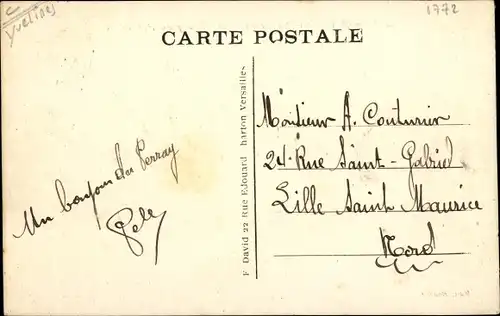 Yvelines
1772
CARTE POSTALE
Un bonjour du Perray
F David 22 Rue Edouard Charton Versailles
Monsieur A. Couturier
24 Rue Saint-Gabriel
Lille Saint Maurice
Nord